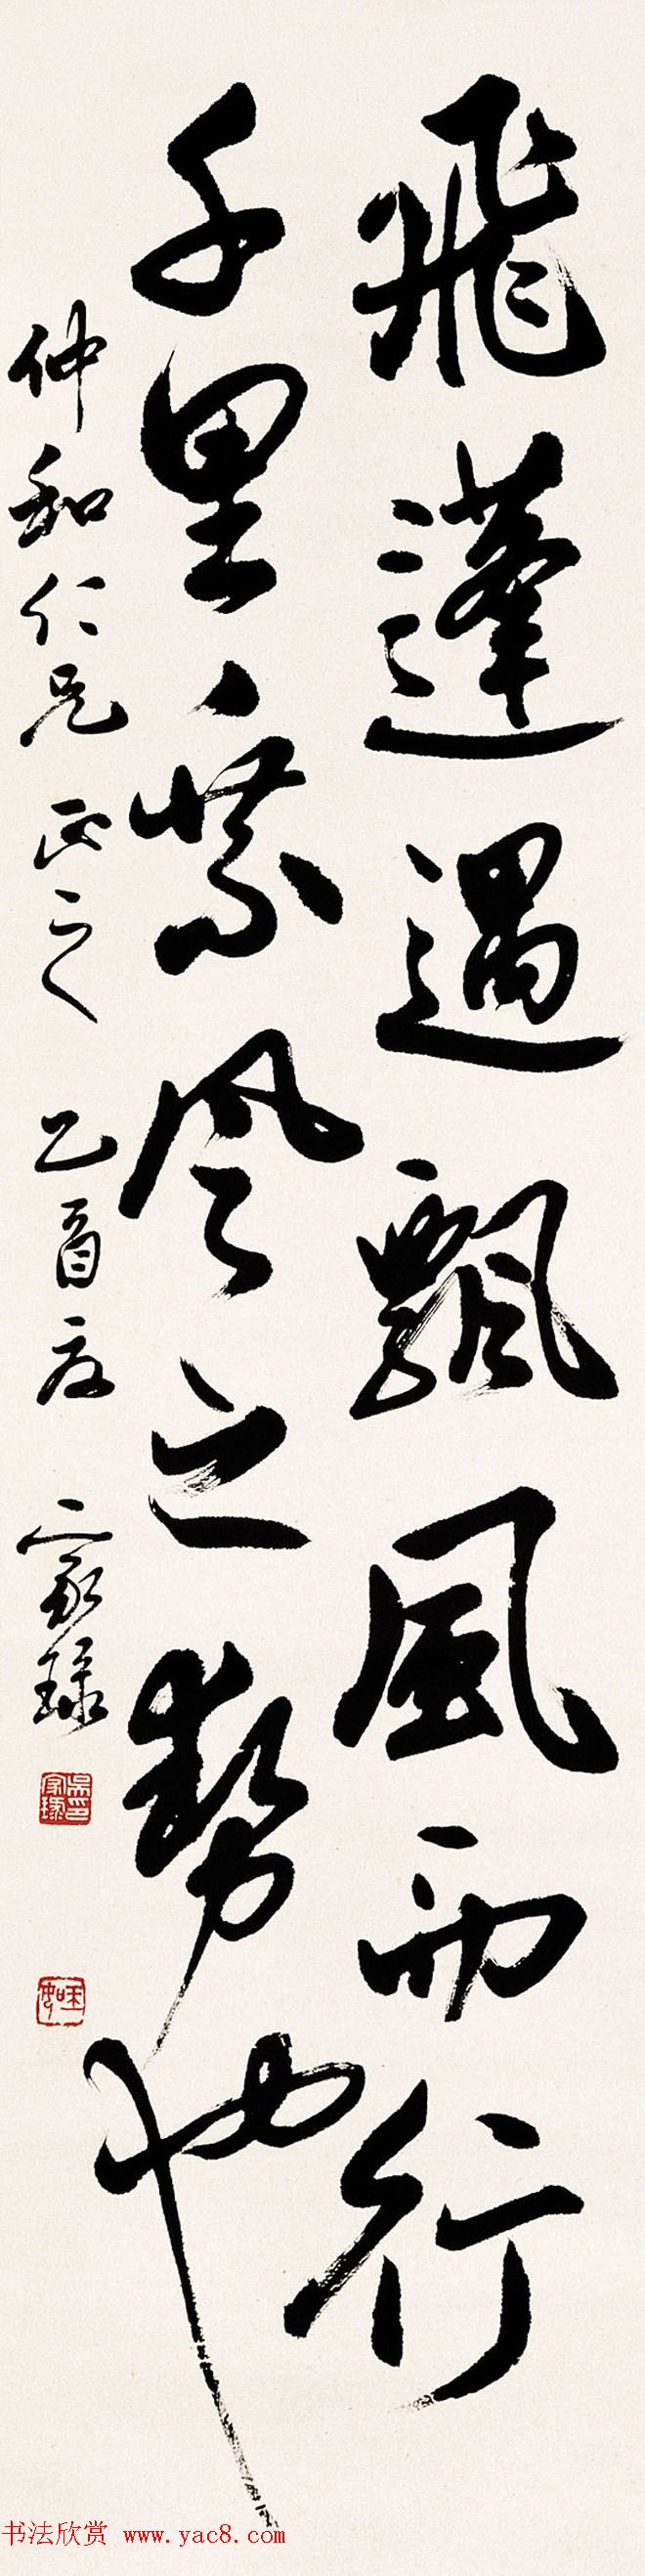 飛蓬遇飄風而行
千里乘風之勢也
仲和仁兄正之 乙酉夏 家琭
吳印家琭
書法欣赏 www.yac8.com